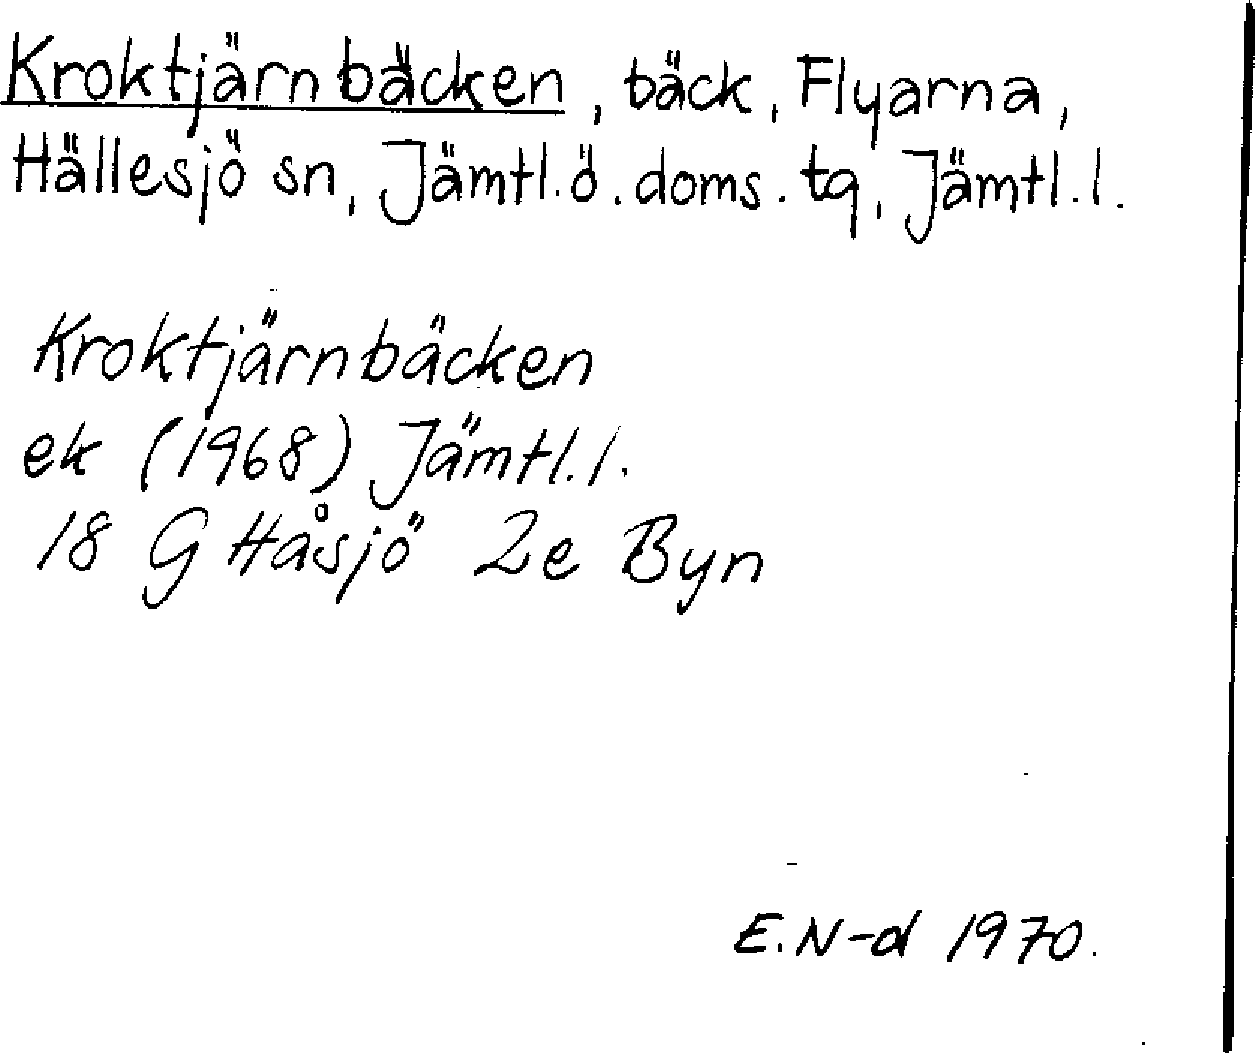 Kroktjärnbäcken, bäck, Flyarna,
Hällesjö sn, Jämtl.ö.doms.tg, Jämtl.l.
Kroktjärnbäcken
ek (1968) Jämtl.l.
18 G Håsjö 2e Byn
E.N-d 1970.